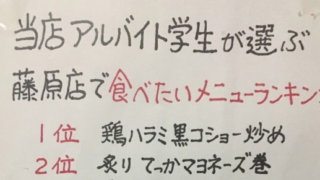 当店アルバイト学生が選ぶ
藤原店で食べたいメニューランキン
1位 鶏ハラミ黒コショー炒め
2位 炙りてっかマヨネーズ巻